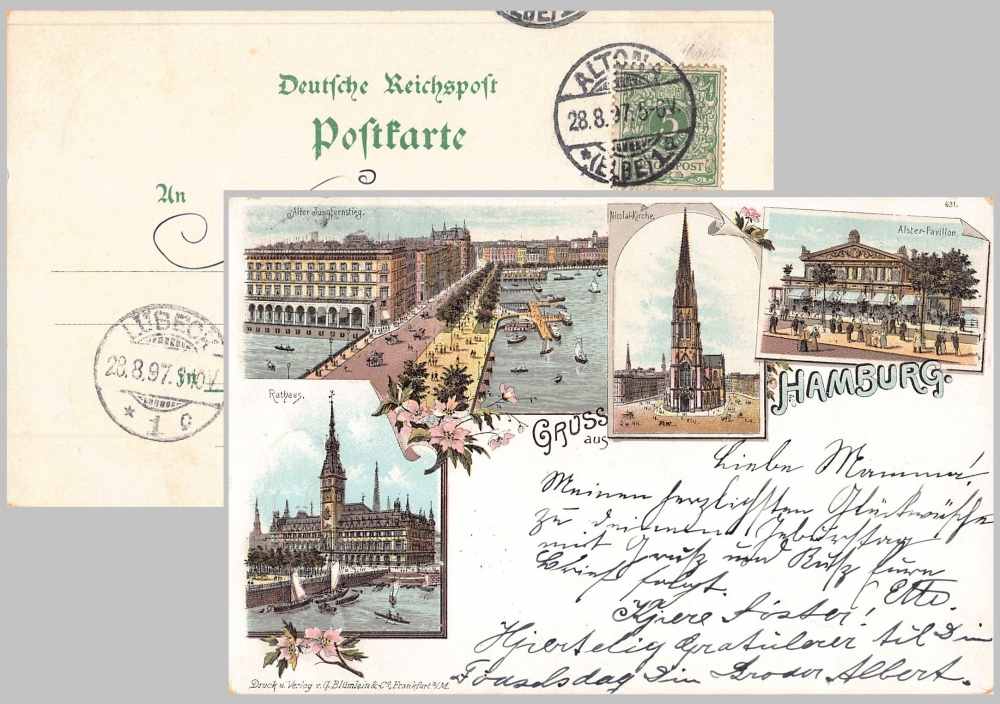 Deutsche Reichspost
Postkarte
An
ALTONA
28.8.97. 5-6V.
* (ELBE) 1
5
POST
LÜBECK
28.8.97.
In
* 1 c
Alter Jungfernstieg.
Nicolai-Kirche.
631.
Alster-Pavillon.
Rathaus.
GRUSS
aus
HAMBURG.
Liebe Mamma!
Meinen herzlichsten Glückwünsche
zu deinem Geburtstag
mit Gruß und Kuß
Brief folgt. Otto.
Kjere Søster!
Hjertelig Gratulerer til Din
Føuselsdag Din Broder Albert.
Druck u. Verlag v. G. Blümlein & Co., Frankfurt a/M.